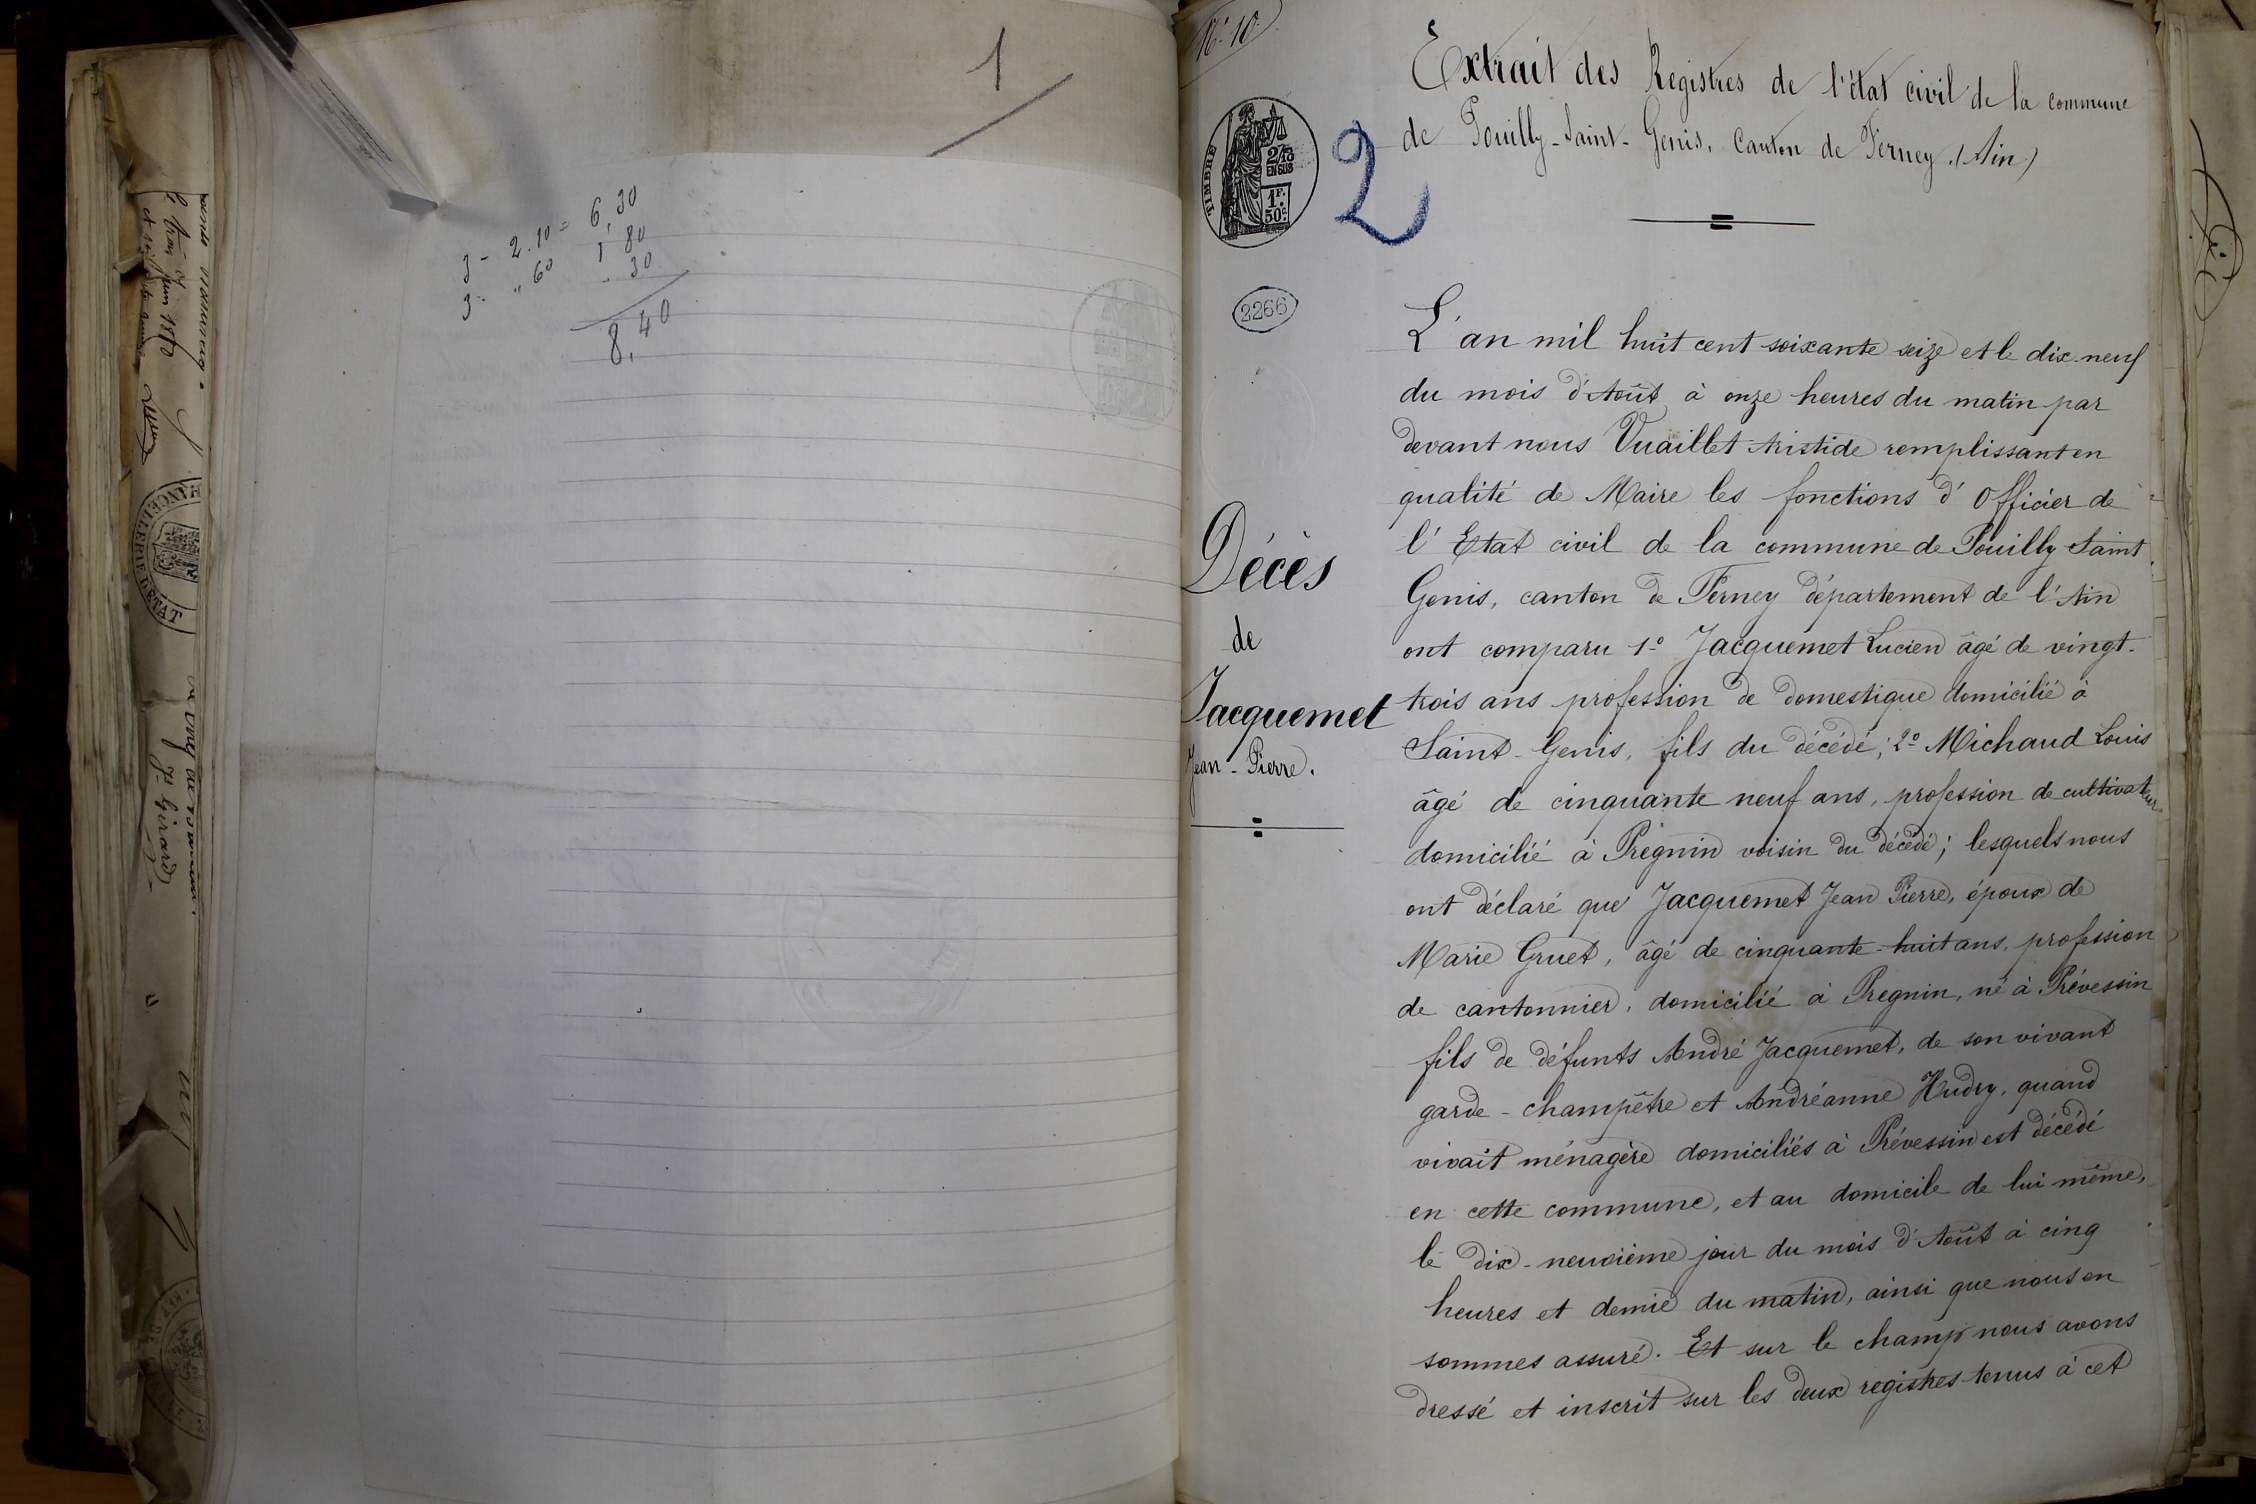 1
3 - 2.10 = 6,30
3 - " 60 1 80
- 30
8,40
CHANCELLERIE D'ÉTAT
N° 10
TIMBRE
2/10
EN SUS
1F.
50c
2
2266
Extrait des Registres de l'état civil de la commune
de Pouilly-Saint-Genis, Canton de Ferney. (Ain)
Décès
de
Jacquemet
Jean-Pierre.
L'an mil huit cent soixante seize et le dix-neuf
du mois d'Août à onze heures du matin par
devant nous Vuaillet Aristide remplissant en
qualité de Maire les fonctions d'Officier de
l'Etat civil de la commune de Pouilly Saint
Genis, canton de Ferney département de l'Ain
ont comparu 1° Jacquemet Lucien âgé de vingt-
trois ans profession de domestique domicilié à
Saint-Genis, fils du décédé; 2° Michaud Louis
âgé de cinquante neuf ans, profession de cultivateur
domicilié à Pregnin voisin du décédé; lesquels nous
ont déclaré que Jacquemet Jean Pierre, époux de
Marie Gruet, âgé de cinquante-huit ans, profession
de cantonnier, domicilié à Pregnin, né à Prévessin
fils de défunts André Jacquemet, de son vivant
garde-champêtre et Andréanne Hudry, quand
vivait ménagère domiciliés à Prévessin est décédé
en cette commune, et au domicile de lui même,
le dix-neuvième jour du mois d'Août à cinq
heures et demie du matin, ainsi que nous en
sommes assuré. Et sur le champ nous avons
dressé et inscrit sur les deux registres tenus à cet